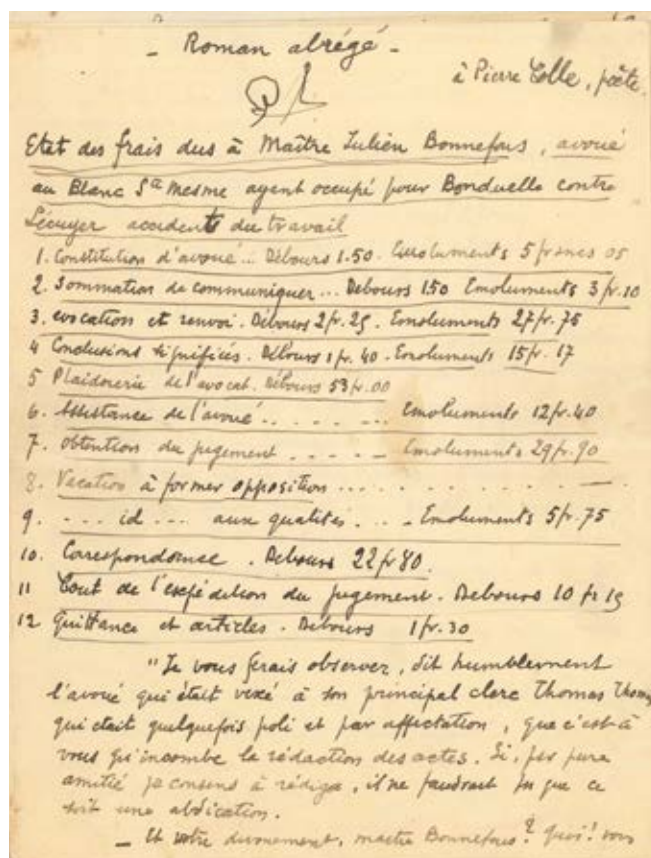 - Roman abrégé -
à Pierre Colle, poète
Etat des frais dus à Maître Julien Bonnefous, avoué
au Blanc Sa mesme ayant occupé pour Bonduelle contre
Lécuyer accidents du travail
1. Constitution d'avoué... Débours 1.50. Emoluments 5 francs 05
2. Sommation de communiquer... Debours 1.50 Emoluments 3 fr. 10
3. evocation et renvoi. Débours 2 fr. 25. Emoluments 27 fr. 75
4 Conclusions signifiées. Débours 1 fr. 40. Emoluments 15 fr. 17
5 Plaidoierie de l'avocat. Débours 53 fr. 00
6. Assistance de l'avoué . . . . . . . . Emoluments 12 fr. 40
7. obtention du jugement . . . . - Emoluments 29 fr. 90
8. Vacation à former opposition ... . . . . . . —
9. - ... id ... aux qualités . . - Emoluments 5 fr. 75
10. Correspondense . Debours 22 fr 80.
11 Cout de l'expédition du jugement. Debours 10 fr 15
12 Quittance et articles. Debours 1 fr. 30
"Je vous ferais observer, dit humblement
l'avoué qui était vexé à son principal clerc Thomas Thomas
qui était quelquefois poli et par affectation, que c'est à
vous qu'incombe la rédaction des actes. Si, par pure
amitié je consens à rédiger, il ne faudrait pas que ce
soit une abdication.
- Et votre dévouement, maitre Bonnefous? quoi! vous